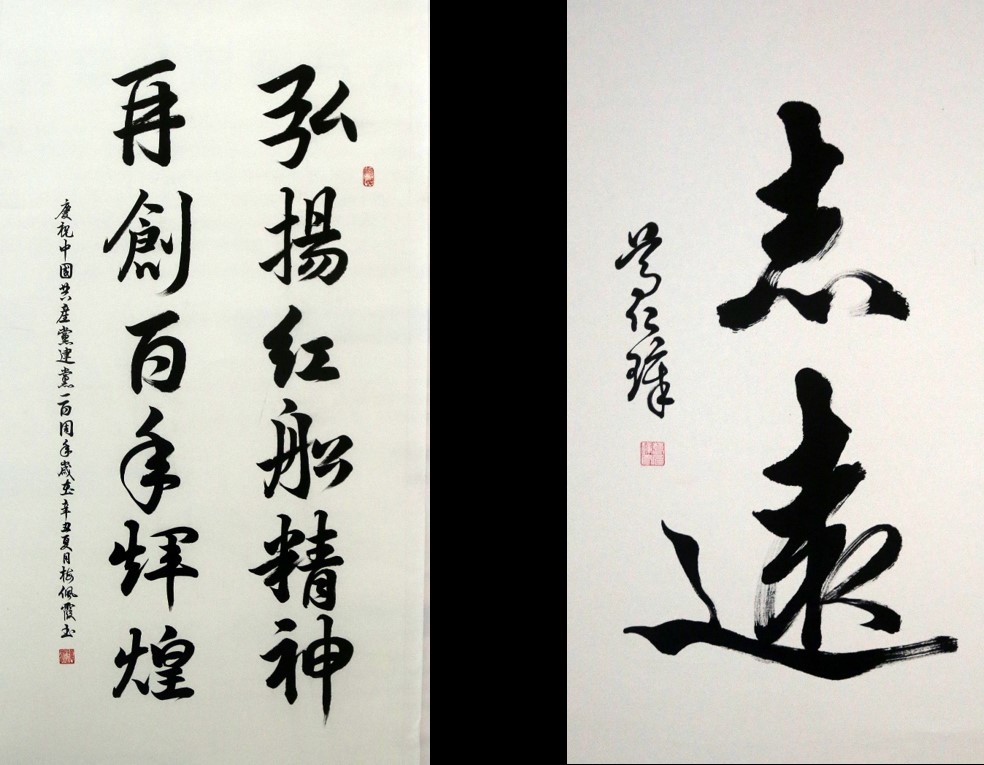 弘揚红船精神
再創百年輝煌
慶祝中國共產黨建黨一百周年歲在辛丑夏月梅佩霞书
志遠
仁璋